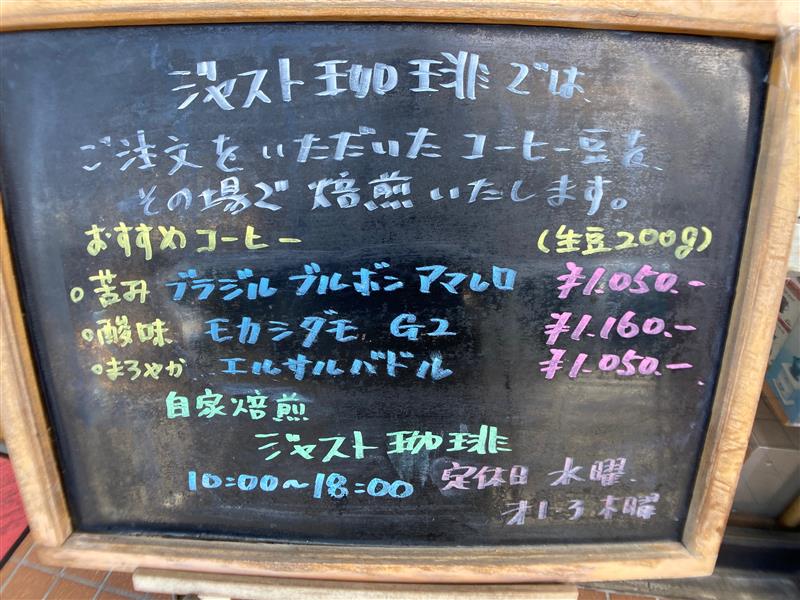 ジャスト珈琲では、
ご注文をいただいたコーヒー豆を、
その場で焙煎いたします。
おすすめコーヒー (生豆200g)
○苦み ブラジル ブルボン アマレロ ¥1.050.-
○酸味 モカシダモ G2 ¥1.160.-
○まろやか エルサルバドル ¥1.050.-
自家焙煎
ジャスト珈琲
10:00~18:00 定休日 水曜、
オ1.3木曜